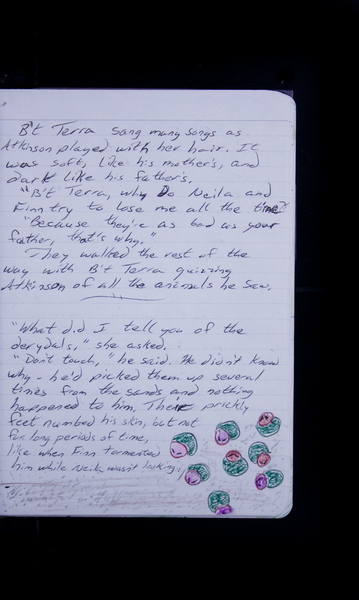 B't Terra sang many songs as
Atkinson played with her hair. It
was soft, like his mother's, and
dark like his father's.
"B't Terra, why Do Neila and
Finn try to lose me all the time?"
"Because they're as bad as your
father, that's why."
They walked the rest of the
way with B't Terra quizzing
Atkinson of all the animals he saw.
"What did I tell you of the
derydals," she asked.
"Don't touch," he said. He didn't know
why - he'd picked them up several
times from the sands and nothing
happened to him. Their prickly
feet numbed his skin, but not
for long periods of time,
like when Finn tormented
him while Neila wasn't looking.